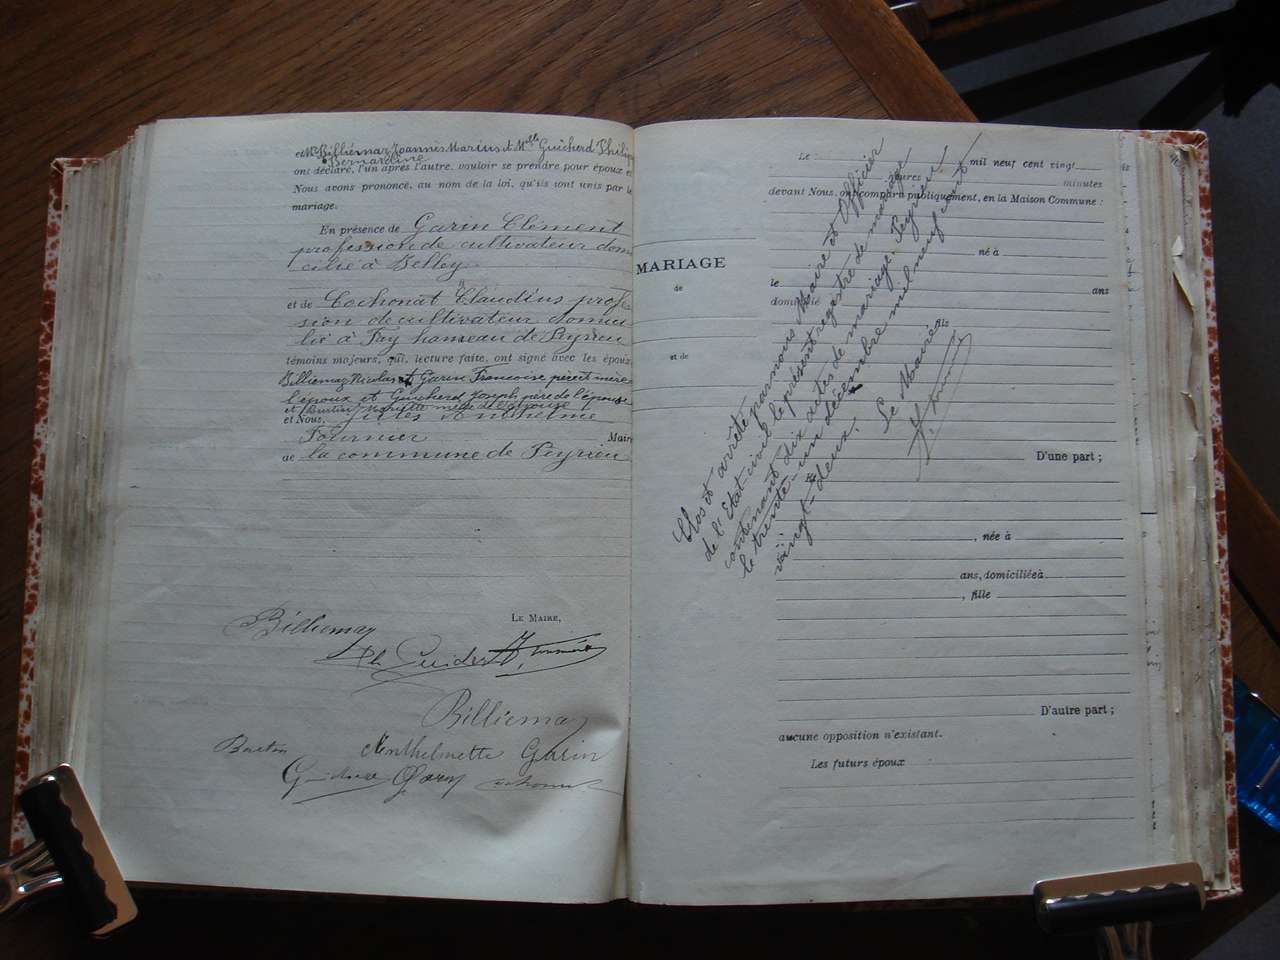 et Mr Billiémaz Joannès Marius et Mlle Guicherd Philip
Bernardine
ont déclaré, l'un après l'autre, vouloir se prendre pour époux e
Nous avons prononcé, au nom de la loi, qu'ils sont unis par l
mariage.
En présence de Garin Clément
profession de cultivateur domi
cilié à Belley
et de Cochonat Claudius profes
sion de cultivateur domici
lié à Fay hameau de Peyrieu
témoins majeurs, qui, lecture faite, ont signé avec les époux
Billiemaz Nicolas et Garin Françoise père et mère
l'époux et Guicherd Joseph père de l'épouse
et Burtin mère de l'épouse
et Nous, Jules Anthelme
Fournier Maire
de la commune de Peyrieu
LE MAIRE,
Billiemaz
Ph Guicherd
Billiemaz
Burtin Anthelmette Garin
Garin
MARIAGE
de
et de
Le mil neuf cent vingt
heures minutes
devant Nous, ont comparu publiquement, en la Maison Commune :
né à
le ans
domicilié
fils
D'une part ;
Et
, née à
ans, domiciliée à
, fille
D'autre part ;
aucune opposition n'existant.
Les futurs époux
Clos et arrêté par nous Maire et Officier
de l'Etat-civil le présent registre de mariage
contenant dix actes de mariage. Peyrieu
le trente-un décembre mil neuf cent
vingt-deux.
Le Maire